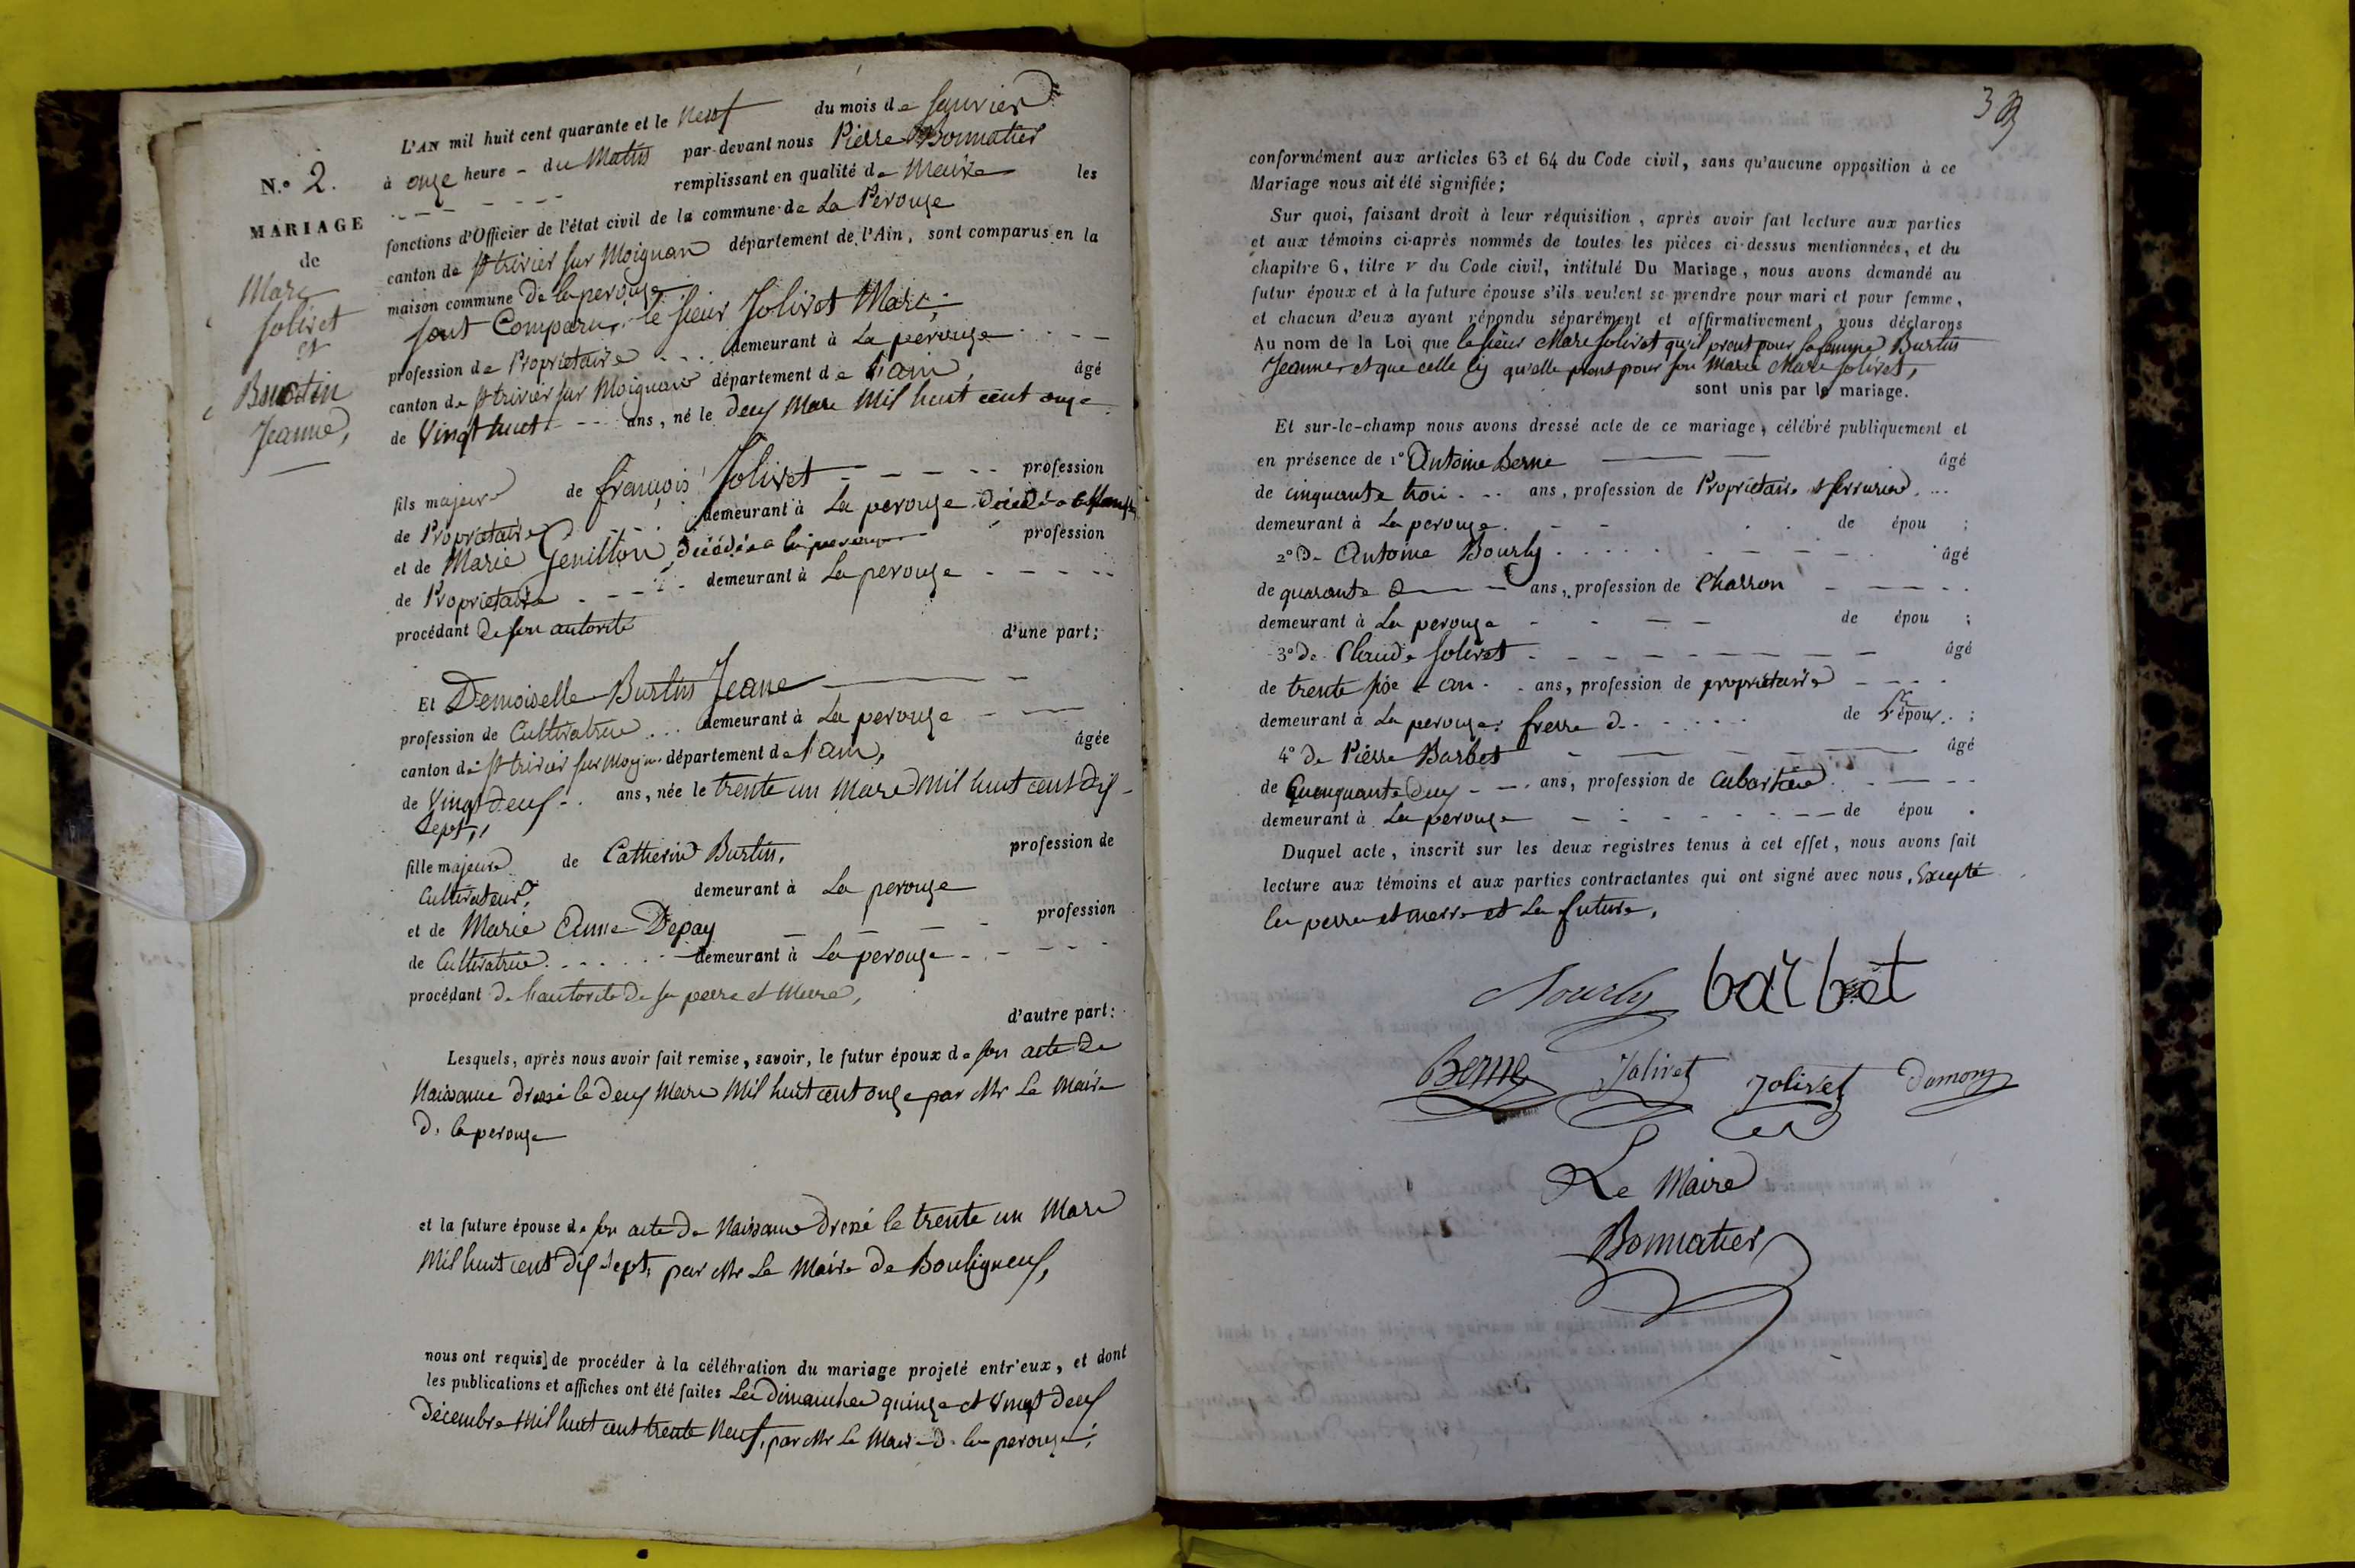 N.º 2.
MARIAGE
de
Marc
Jolivet
et
Burtin
Jeanne,
L'AN mil huit cent quarante et le neuf du mois de Janvier
à onze heure - du Matin par-devant nous Pierre Bonnatier
remplissant en qualité de Maire les
fonctions d'Officier de l'état civil de la commune de La Perouze
canton de St trivier sur Moignan département de l'Ain, sont comparus en la
maison commune De la perouze
sont Comparu, le sieur Jolivet Marc,
profession de Propriétaire demeurant à La perouze
canton de St trivier sur Moignan département de l'ain, âgé
de Vingt huit ans, né le deux Mare Mil huit cent onze
fils majeur de françois Jolivet profession
de Proprietaire demeurant à La perouze décédé a
et de Marie Genillon, décédée a la perouze profession
de Propriétaire demeurant à La perouze
procédant de son autorité d'une part;
Et Demoiselle Burtin Jeane
profession de Cultivatrice demeurant à La perouze
canton de St trivier sur département de l'ain, âgée
de Vingt deux ans, née le trente un Mare Mil huit cent dix
sept,
fille majeure de Catherin Burtin, profession de
Cultivateur, demeurant à La perouze
et de Marie Anne Depay profession
de Cultivatrice demeurant à La perouze
procédant de l'autorité de sa peere et Meere,
d'autre part:
Lesquels, après nous avoir fait remise, savoir, le futur époux de son acte de
Naissance dressé le deux Mare Mil huit cent onze par Mr Le Maire
de la perouze
et la future épouse de son acte de Naissance dressé le trente un Mare
Mil huit cent dix sept, par Mr Le Maire de Bouligneux,
nous ont requis de procéder à la célébration du mariage projeté entr'eux, et dont
les publications et affiches ont été faites Les dimanches quinze et Vingt deux
Décembre Mil huit cent trente Neuf, par Mr Le Maire de la perouze;
3
conformément aux articles 63 et 64 du Code civil, sans qu'aucune opposition à ce
Mariage nous ait été signifiée;
Sur quoi, faisant droit à leur réquisition, après avoir fait lecture aux parties
et aux témoins ci-après nommés de toutes les pièces ci-dessus mentionnées, et du
chapitre 6, titre v du Code civil, intitulé Du Mariage, nous avons demandé au
futur époux et à la future épouse s'ils veulent se prendre pour mari et pour femme,
et chacun d'eux ayant répondu séparément et affirmativement, nous déclarons
Au nom de la Loi que le sieur Marc Jolivet qu'il prent pour sa femme Burtin
Jeanne, et que celle cy qu'elle prent pour son Marie Marc Jolivet,
sont unis par le mariage.
Et sur-le-champ nous avons dressé acte de ce mariage, célébré publiquement et
en présence de 1º Antoine Berne âgé
de cinquante troi ans, profession de Propriétaire
demeurant à La perouze. de épou ;
2º De Antoine Bourly âgé
de quarante ans, profession de Charron
demeurant à La perouze de épou ;
3º de Claude Jolivet âgé
de trente ans, profession de propriétaire
demeurant à La perouze; frerre de de l'époux ;
4º de Pierre Barbet âgé
de Cinquante Deux ans, profession de Cabartier
demeurant à La perouze de épou .
Duquel acte, inscrit sur les deux registres tenus à cet effet, nous avons fait
lecture aux témoins et aux parties contractantes qui ont signé avec nous, Excepté
les perre et merre et La future,
Bourly barbet
Berne Jolivet Jolivet Damon
Le Maire
Bonnatier